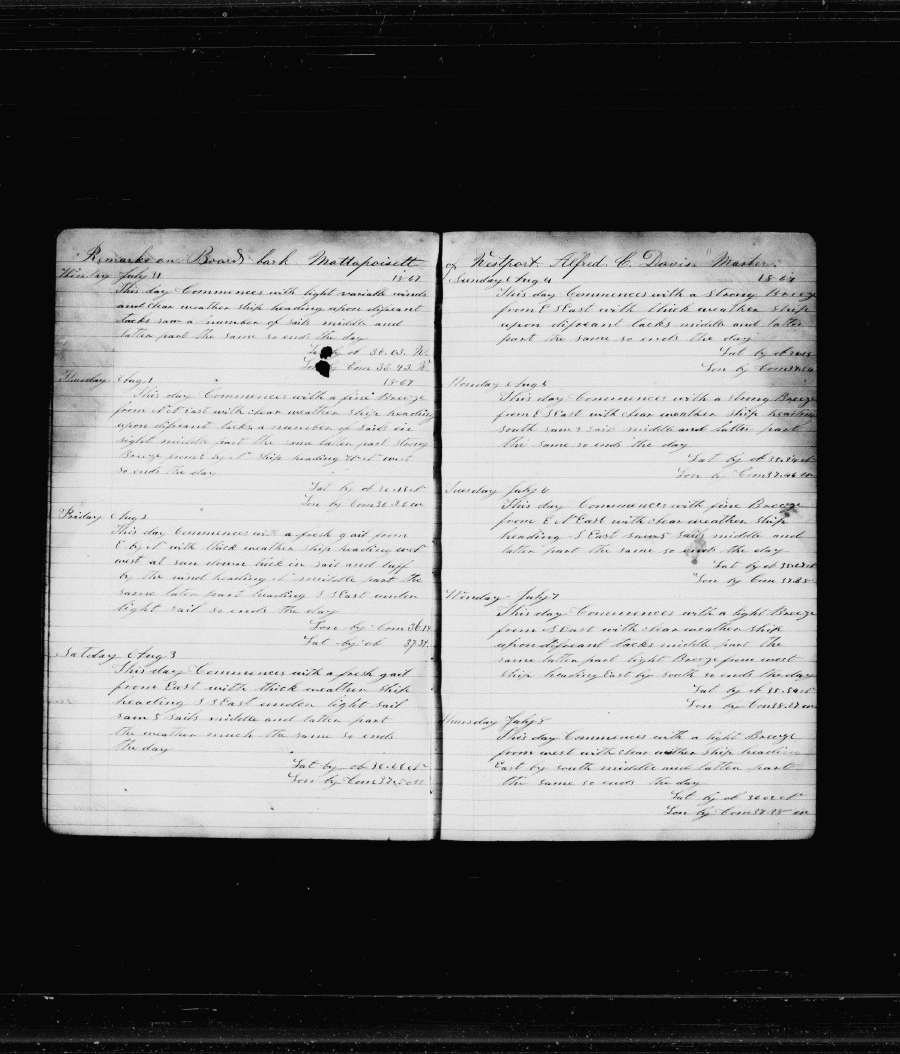 Remarks on Board bark Mattapoisett
Wensday July 31 1867
This day Commences with light variable winds
and clear weather ship heading upon difreant
tacks saw a number of sails middle and
latter part the same so ends the day
Lat by ob 36.03 N.
Lon by Com 35.43 W
Thursday Aug 1 1867
This day Commences with a fine Breeze
from N East with clear weather ship heading
upon difreant tacks a number of sails in
sight middle part the same latter part strong
Breeze from E by N ship heading west
so ends the day
Lat by ob
Lon by Com
Friday Aug 2
This day Commences with a fresh gail from
E by N with thick weather ship heading
west at sun down tuck in sail and luff
by the wind heading middle part the
same latter part heading S S East under
light sail so ends the day
Lon by Com 36
Lat by ob 37
Satday Aug 3
This day Commences with a fresh gail
from East with thick weather ship
heading S S East under light sail
saw 5 sails middle and latter part
the weather much the same so ends
the day
Lat by ob
Lon by Com
of Westport. Alfred C. Davis. Master.
Sunday Aug 4 1867
This day Commences with a strong Breeze
from E S East with thick weather ship
upon difreant tacks middle and latter
part the same so ends the day
Lat by ob
Lon by Com
Monday Aug 5
This day Commences with a strong Breeze
from E S East with clear weather ship heading
south saw sail middle and latter part
the same so ends the day
Lat by ob
Lon by Com
Tuesday July 6
This day Commences with fine Breeze
from E N East with clear weather ship
heading S East saw 5 sails middle and
latter part the same so ends the day
Lat by ob
Lon by Com
Wensday July 7
This day Commences with a light Breeze
from S East with clear weather ship
upon difreant tacks middle part the
same latter part light Breeze from west
ship heading East by south so ends the day
Lat by ob
Lon by Com
Thursday July 8
This day Commences with a light Breeze
from west with clear wather ship heading
East by south middle and latter part
the same so ends the day
Lat by ob
Lon by Com